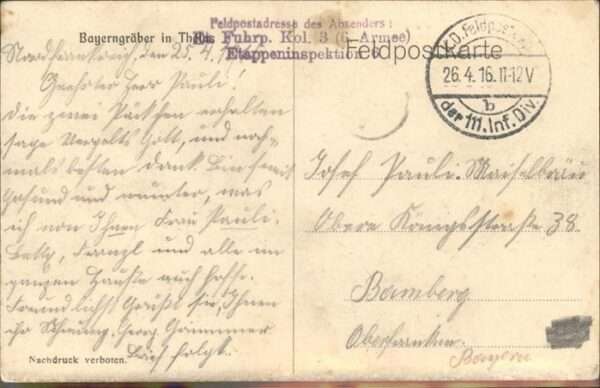 Bayerngräber in Th
Feldpostadresse des Absenders:
Fuhrp. Kol. 3 (6. Armee)
Etappeninspektion 6.
Feldpostkarte
K.D. Feldpost
26.4.16. 11-12V
b
der 111. Inf. Div.
Nordfrankreich, den 25.4.
Geehrter Herr Pauli!
Die zwei Päckchen erhalten
sage Vergelts Gott, und noch=
mals besten Dank. Bin soweit
Gesund und munter, was
ich von Ihnen Frau Pauli.
Betty, Franzl und alle im
ganzen Hause auch hoffe.
Freundlichst Grüßt Sie, Ihnen
ihr Georg
Brief folgt.
Nachdruck verboten.
Josef Pauli. Maiselbräu
Obere Königsstraße 38.
Bamberg
Oberfranken.
Bayern